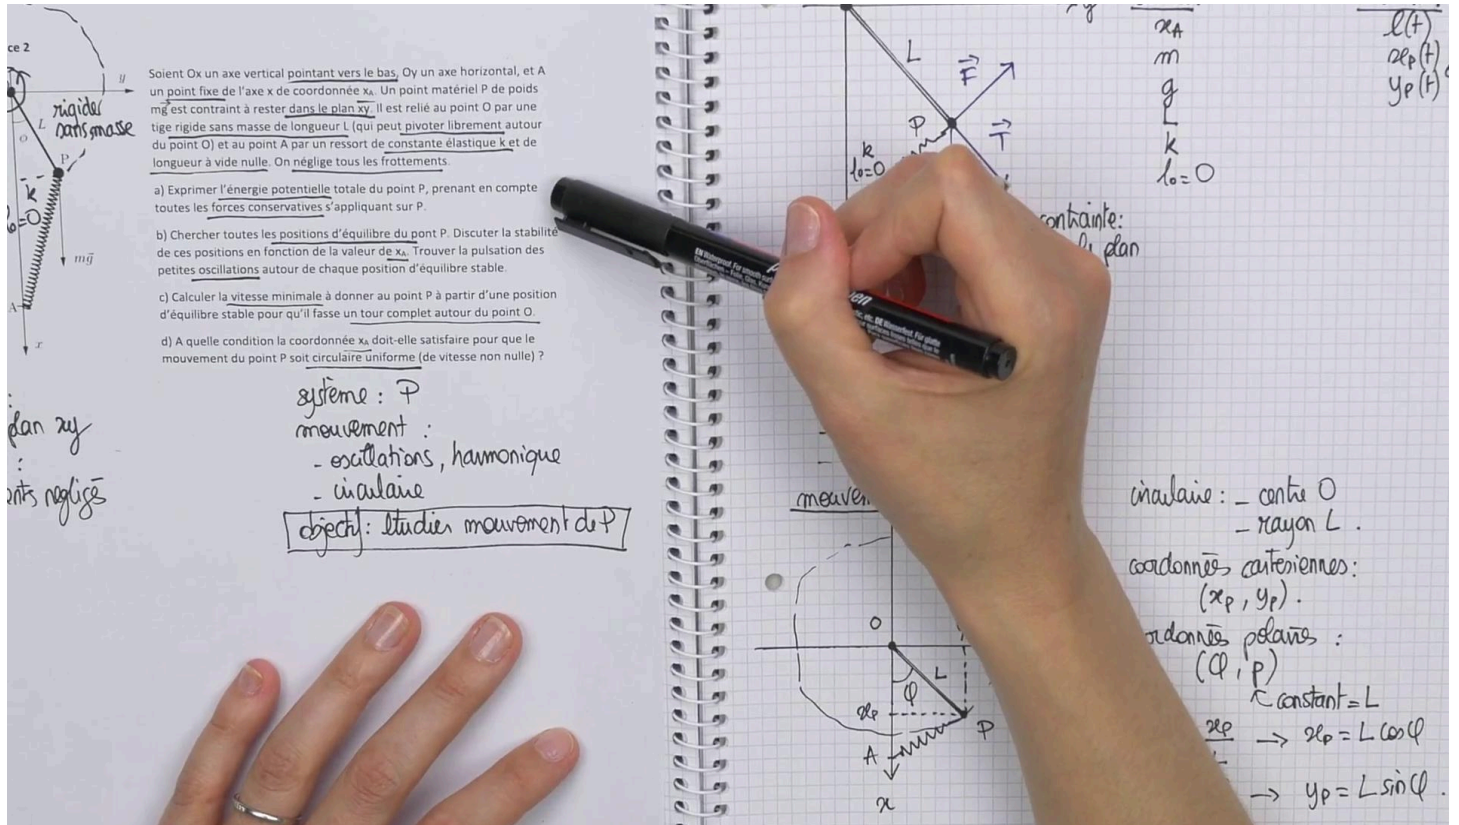 ce 2
y
L
rigide
sans masse
O
P
k
l₀=0
mg⃗
A
x
Soient Ox un axe vertical pointant vers le bas, Oy un axe horizontal, et A
un point fixe de l'axe x de coordonnée xA. Un point matériel P de poids
mg⃗ est contraint à rester dans le plan xy. Il est relié au point O par une
tige rigide sans masse de longueur L (qui peut pivoter librement autour
du point O) et au point A par un ressort de constante élastique k et de
longueur à vide nulle. On néglige tous les frottements.
a) Exprimer l'énergie potentielle totale du point P, prenant en compte
toutes les forces conservatives s'appliquant sur P.
b) Chercher toutes les positions d'équilibre du pont P. Discuter la stabilité
de ces positions en fonction de la valeur de xA. Trouver la pulsation des
petites oscillations autour de chaque position d'équilibre stable.
c) Calculer la vitesse minimale à donner au point P à partir d'une position
d'équilibre stable pour qu'il fasse un tour complet autour du point O.
d) A quelle condition la coordonnée xA doit-elle satisfaire pour que le
mouvement du point P soit circulaire uniforme (de vitesse non nulle) ?
plan xy
:
ents negligés
système : P
mouvement :
- oscillations, harmonique
- circulaire
objectif : etudier mouvement de P
L
F⃗
P
T⃗
k
l₀=0
xA
m
g
L
k
l₀=0
l(t)
xP(t)
yP(t)
contrainte:
plan
mouvem
O
L
φ
xP
P
A
x
circulaire : - centre O
- rayon L .
coordonnées cartésiennes :
(xP, yP).
ordonnées polaires :
(φ, ρ)
↖ constant = L
xP → xP = L cos φ
→ yP = L sin φ .